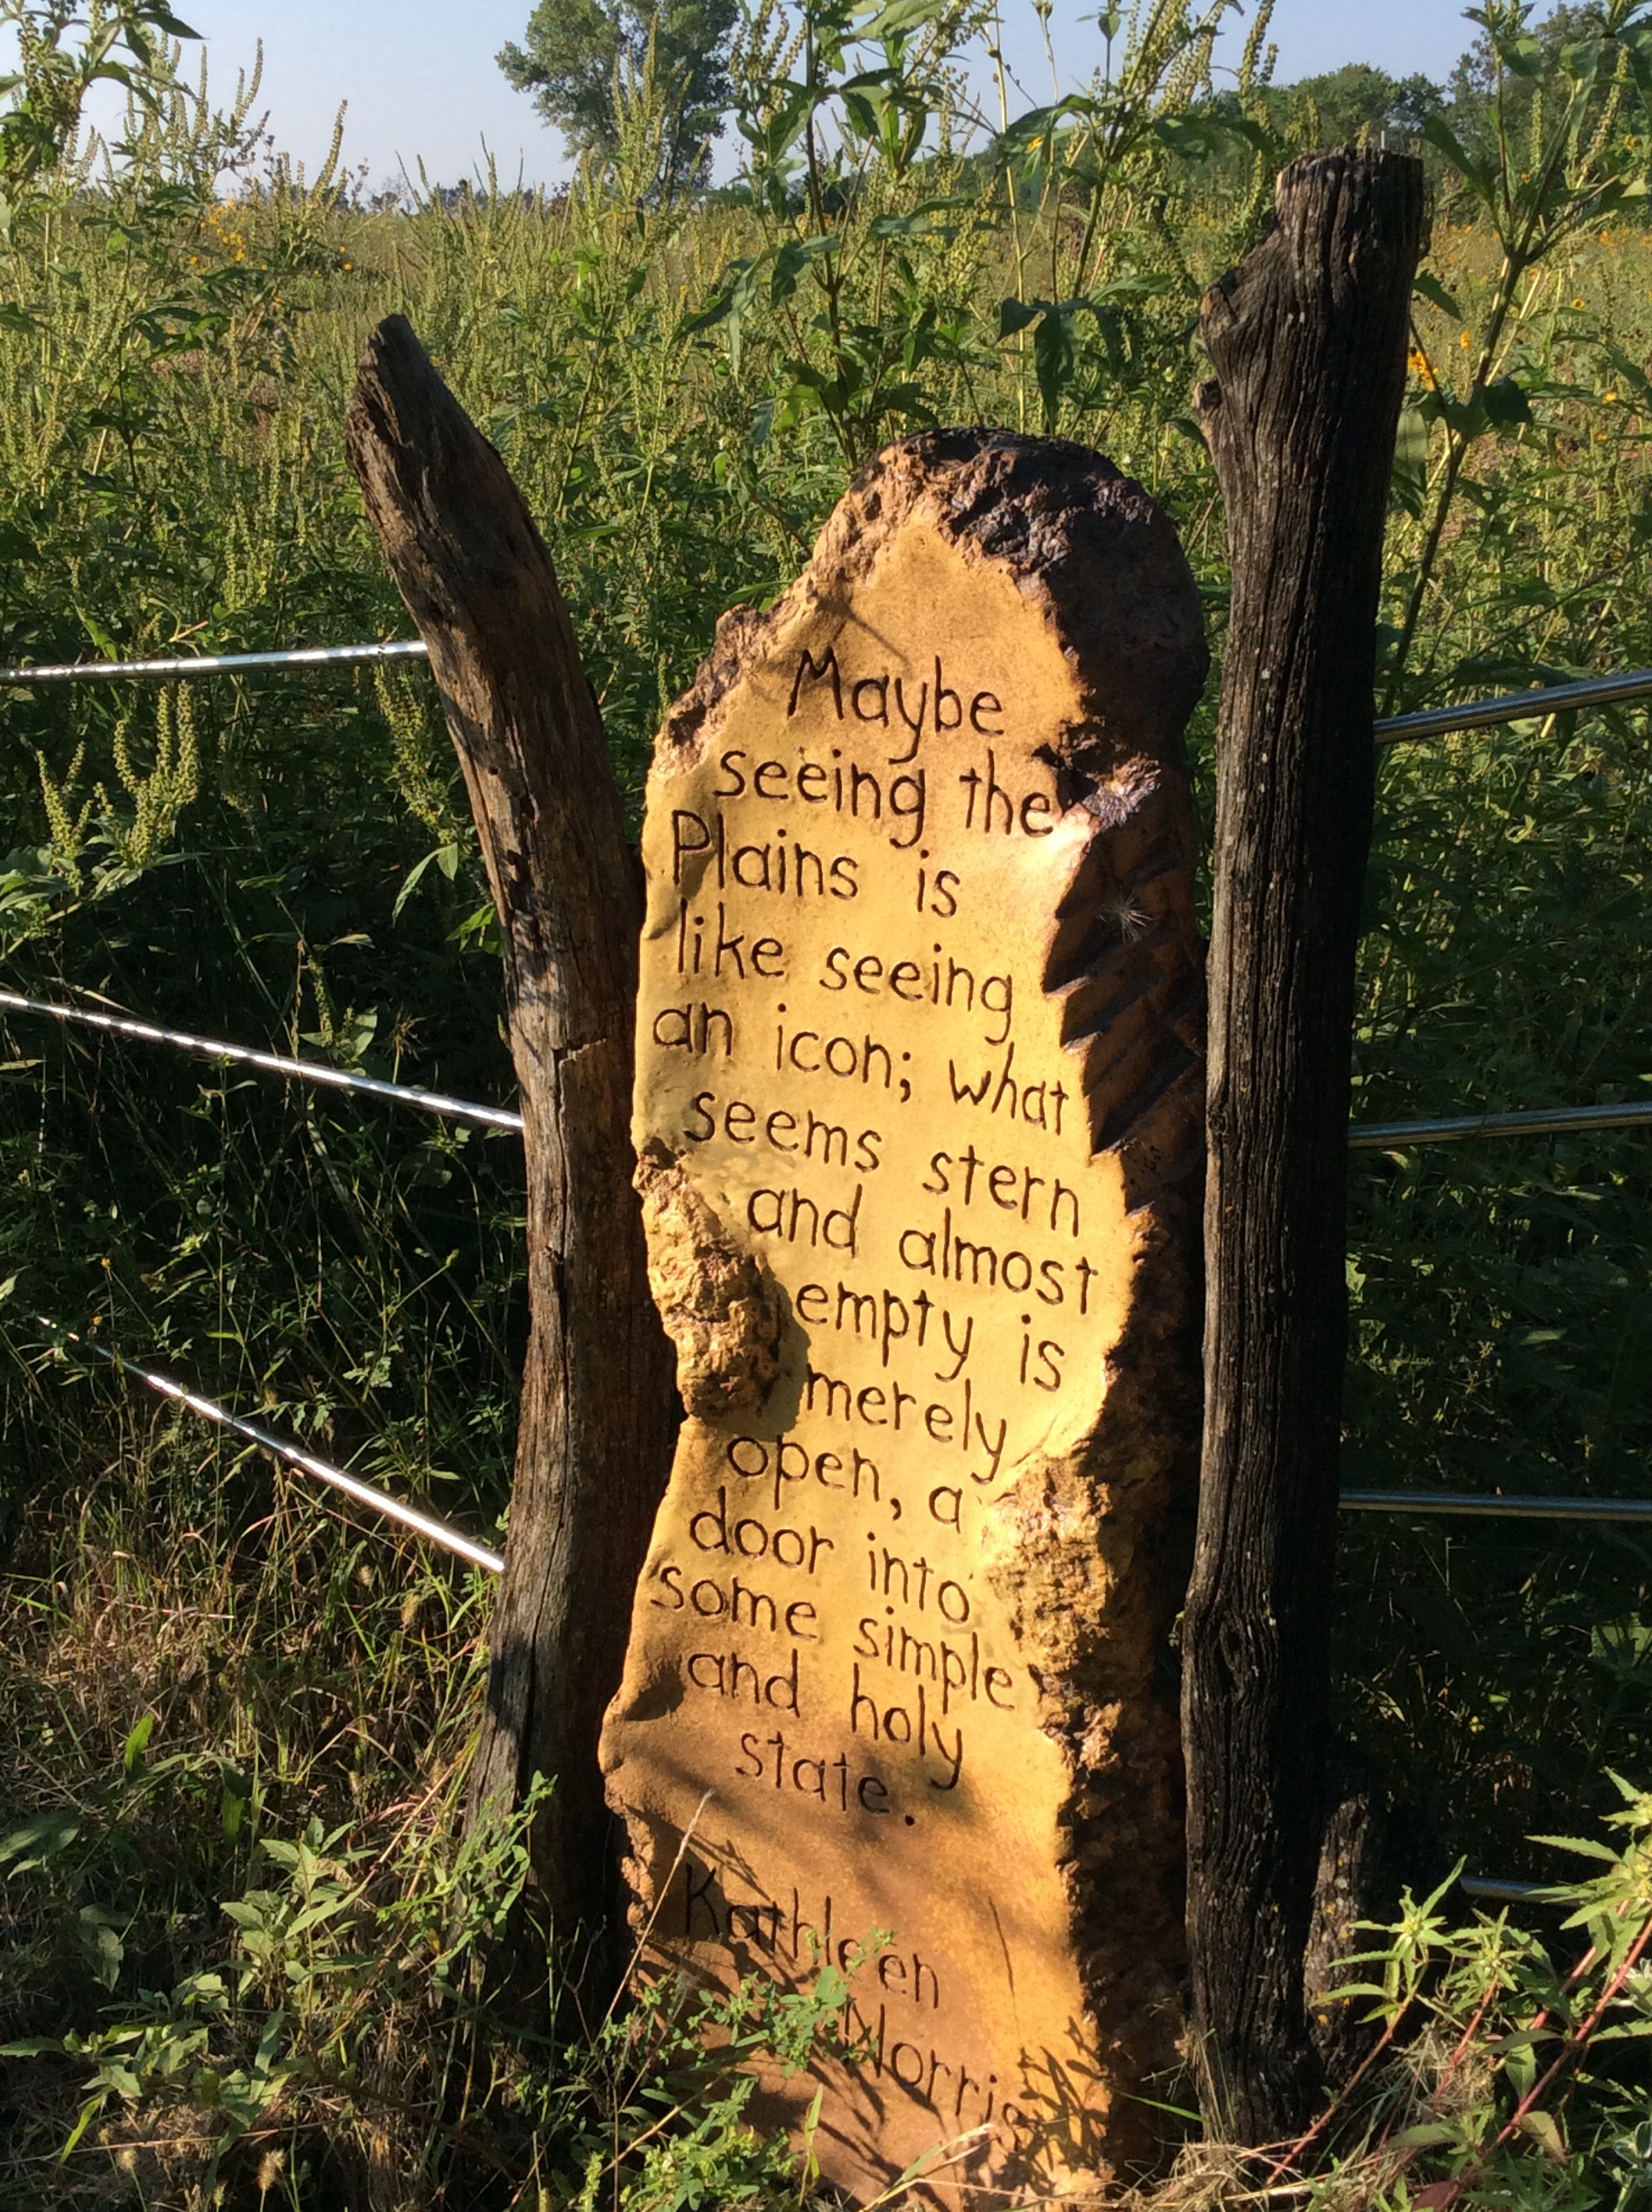 Maybe
seeing the
Plains is
like seeing
an icon; what
seems stern
and almost
empty is
merely
open, a
door into
some simple
and holy
state.
Kathleen
Norris